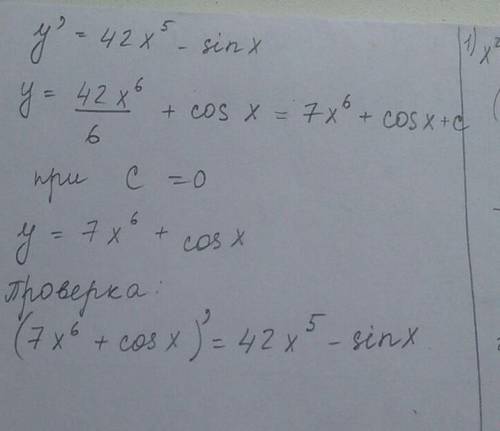 y' = 42x⁵ - sinx
y = 42x⁶/6 + cos x = 7x⁶ + cosx + c
при c = 0
y = 7x⁶ + cosx
проверка:
(7x⁶ + cosx)' = 42x⁵ - sinx
1) x²
(